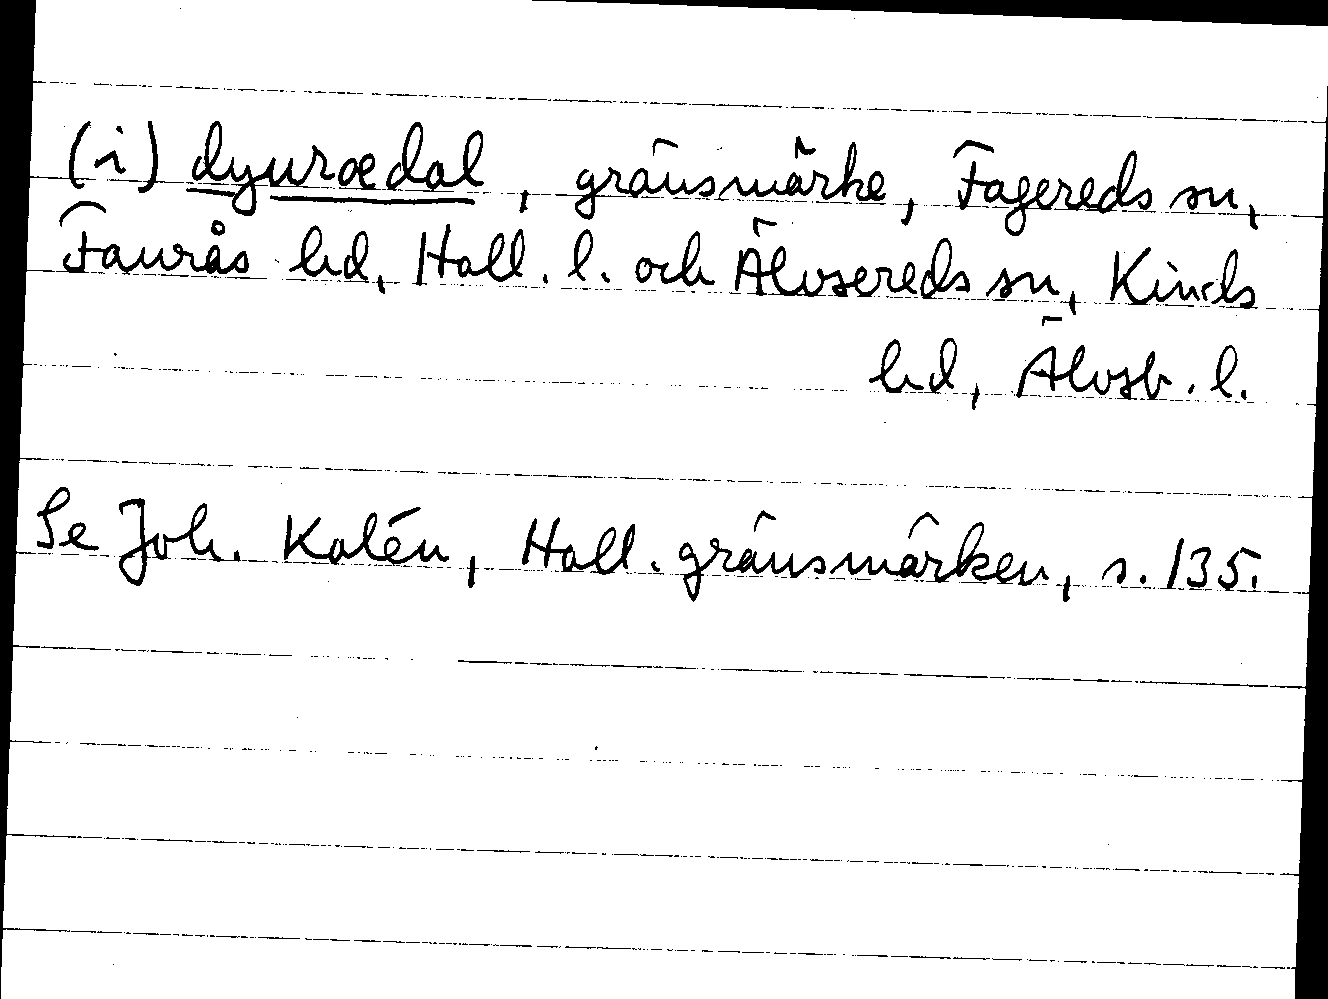 (i) dyurædal, gränsmärke, Fagereds sn,
Faurås hd, Hall. l. och Älvsereds sn, Kinds
hd, Älvsb. l.
Se Joh. Kalén, Hall. gränsmärken, s. 135.